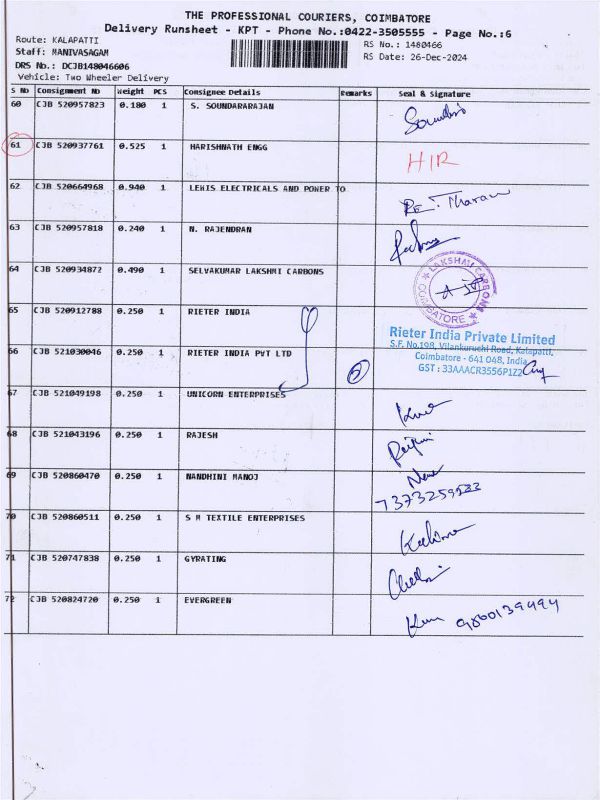 THE PROFESSIONAL COURIERS, COIMBATORE
Delivery Runsheet - KPT - Phone No.:0422-3505555 - Page No.:6
Route: KALAPATTI
RS No.: 1480466
Staff: MANIVASAGAM
RS Date: 26-Dec-2024
DRS No.: DCJB148046606
Vehicle: Two Wheeler Delivery
S No Consignment No Weight PCS Consignee Details Remarks Seal & Signature
60 CJB 520957823 0.180 1 S. SOUNDARARAJAN
61 CJB 520937761 0.525 1 HARISHNATH ENGG
HIR
62 CJB 520664968 0.940 1 LEKIS ELECTRICALS AND POWER TO
63 CJB 520957818 0.240 1 N. RAJENDRAN
64 CJB 520934872 0.490 1 SELVAKUMAR LAKSHMI CARBONS
LAKSHMI CARBONS
COIMBATORE
65 CJB 520912788 0.250 1 RIETER INDIA
Rieter India Private Limited
S.F. No.198, Vilankuruchi Road, Kalapatti,
66 CJB 521030046 0.250 1 RIETER INDIA PVT LTD
Coimbatore - 641 048, India
GST : 33AAACR3556P1Z2
67 CJB 521049198 0.250 1 UNICORN ENTERPRISES
68 CJB 521043196 0.250 1 RAJESH
69 CJB 520860470 0.250 1 NANDHINI MANOJ
70 CJB 520860511 0.250 1 S M TEXTILE ENTERPRISES
71 CJB 520747838 0.250 1 GYRATING
72 CJB 520824720 0.250 1 EVERGREEN